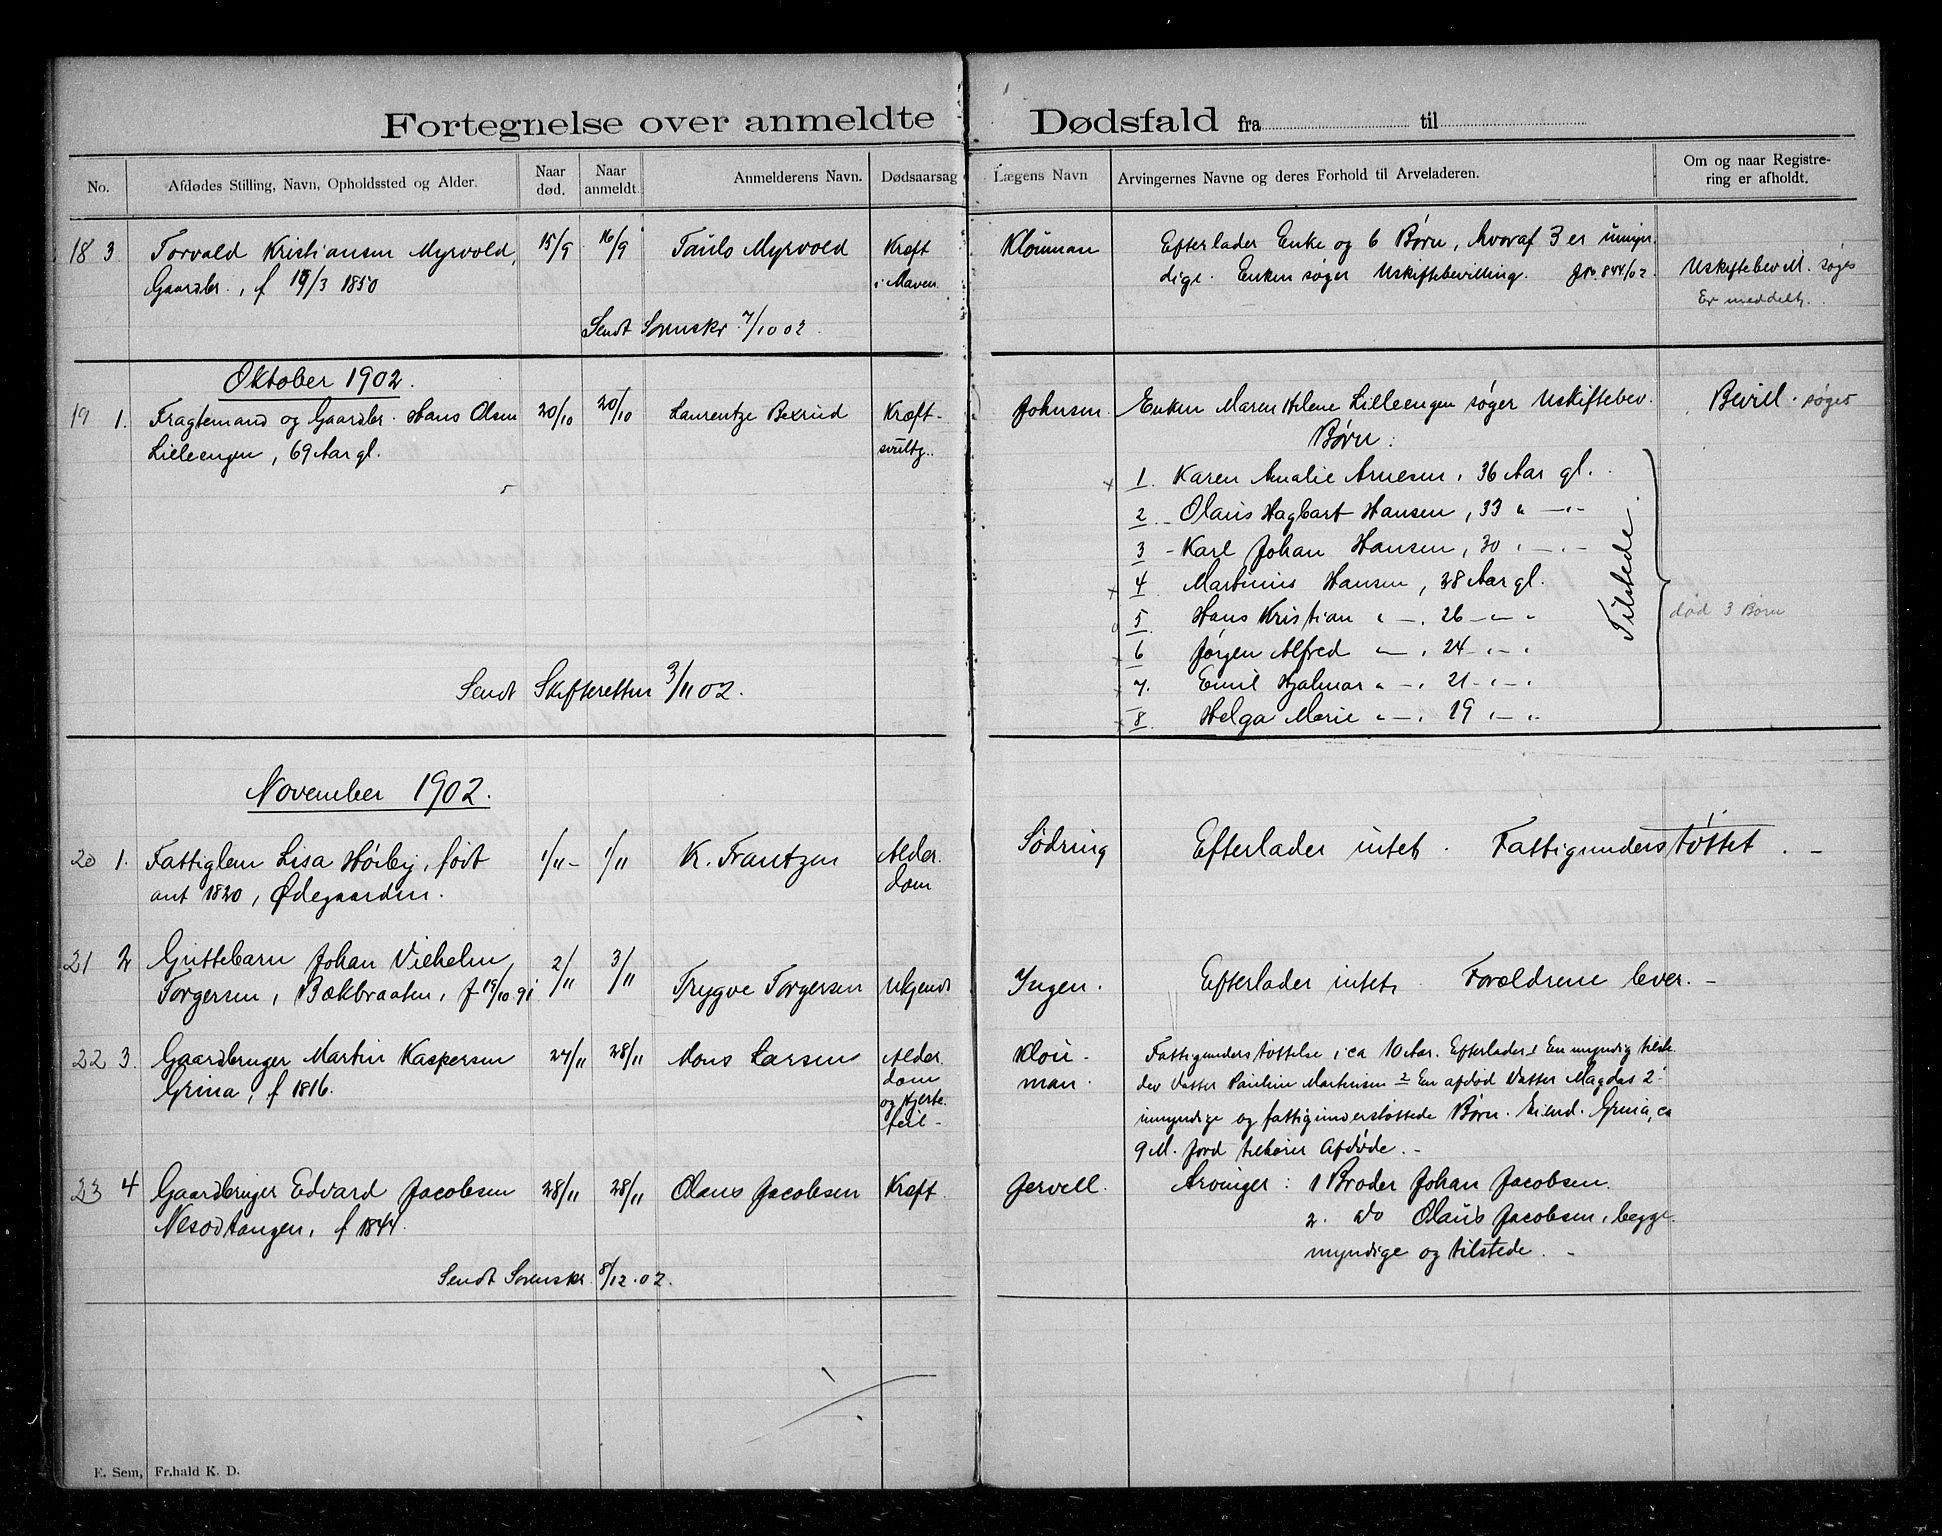 Fortegnelse over anmeldte Dødsfald fra til
No. Afdødes Stilling, Navn, Opholdssted og Alder. Naar død. Naar anmeldt. Anmelderens Navn. Dødsaarsag Lægens Navn Arvingernes Navne og deres Forhold til Arveladeren. Om og naar Registre-
ring er afholdt.
18 3 Torvald Kristiansen Myrvold, 15/9 16/9 Myrvold Kræft Klouman Efterlader Enke og 6 Børn, hvoraf 3 er umyn-
Gaardbr., f /3 1850 i Maven dige. Enken søger Uskiftebevilling. Jno 844/02. Uskiftebevil. søges
Er meddelt.
Sendt Sorenskr. 7/10 02.
Oktober 1902.
19 1. Fragtemand og Gaardbr. Hans Olsen 20/10 20/10 Laurentze Bexrud Kræft- Johnsen Enken Maren Helene Lilleengen søger Uskiftebev. Bevill. søges
Lilleengen, 69 Aar gl. svulst. Børn:
1. Karen Amalie Arnesen, 36 Aar gl.
2. Olaus Hagbart Hansen, 33 " — " —
3 - Karl Johan Hansen, 30 " — " —
4 Martinius Hansen, 28 Aar gl.
5. Hans Kristian " —, 26 — " — "
6 Jørgen Alfred " —, 24 — " — "
7. Emil Hjalmar " —, 21 — " — "
8 Helga Marie " —, 19 " — "
Tilstede.
død 3 Børn
Sendt Skifteretten 3/11 02.
November 1902.
20 1. Fattiglem Lisa Høiby, født 1/11 - 1/11 K. Frantzen Alder- Sødring Efterlader intet. Fattigunderstøttet. -
ant 1820, Ødegaarden. dom
21 2 Gruttebarn Johan Vilhelm 2/11 3/11
Torgersen, Bækbraaten, f 19/10 91 Trygve Torgersen Ukjendt Ingen. Efterlader intet. Forældrene lever. -
22 3. Gaardbruger Martin Kaspersen 27/11 28/11 Mons Larsen Alder- Klou- Fattigunderstøttelse i ca 10 Aar. Efterlader 1 En myndig tilste-
Grina, f 1816. dom man. der Datter Pauline Martinsen 2 En afdød Datter Magdas 2
og Hjerte- umyndige og fattigunderstøttede Børn. Eiend. Grina, ca
feil - 9 M. Jord tilhører Afdøde. -
23 4 Gaardbruger Edvard Jacobsen 28/11 28/11 Olaus Jacobsen Kræft. Jervell. Arvinger: 1 Broder Johan Jacobsen.
Nesodtangen, f 1844. 2. do Olaus Jacobsen, begge
myndige og tilstede. -
Sendt Sorenskr. 8/12. 02.
E. Sem, Fr.hald K. D.